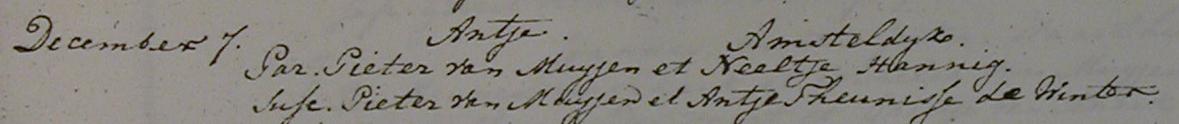 December 7. Antje. Amsteldyk.
Par. Pieter van Muyjen et Neeltje Hannig.
Susc. Pieter van Muyjen et Antje Theunisse de Winter.